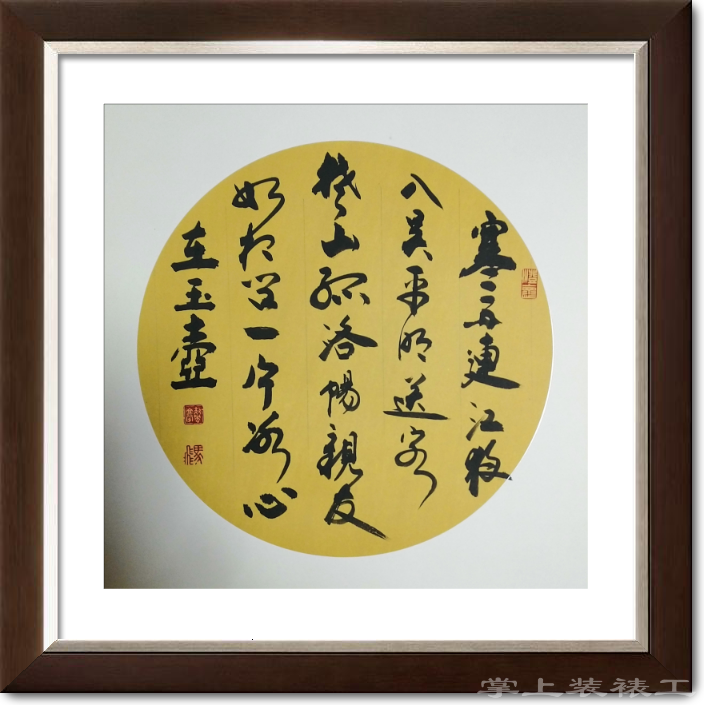 寒雨連江夜
入吴平明送客
楚山孤洛陽親友
如相问一片冰心
在玉壺
掌上装裱工